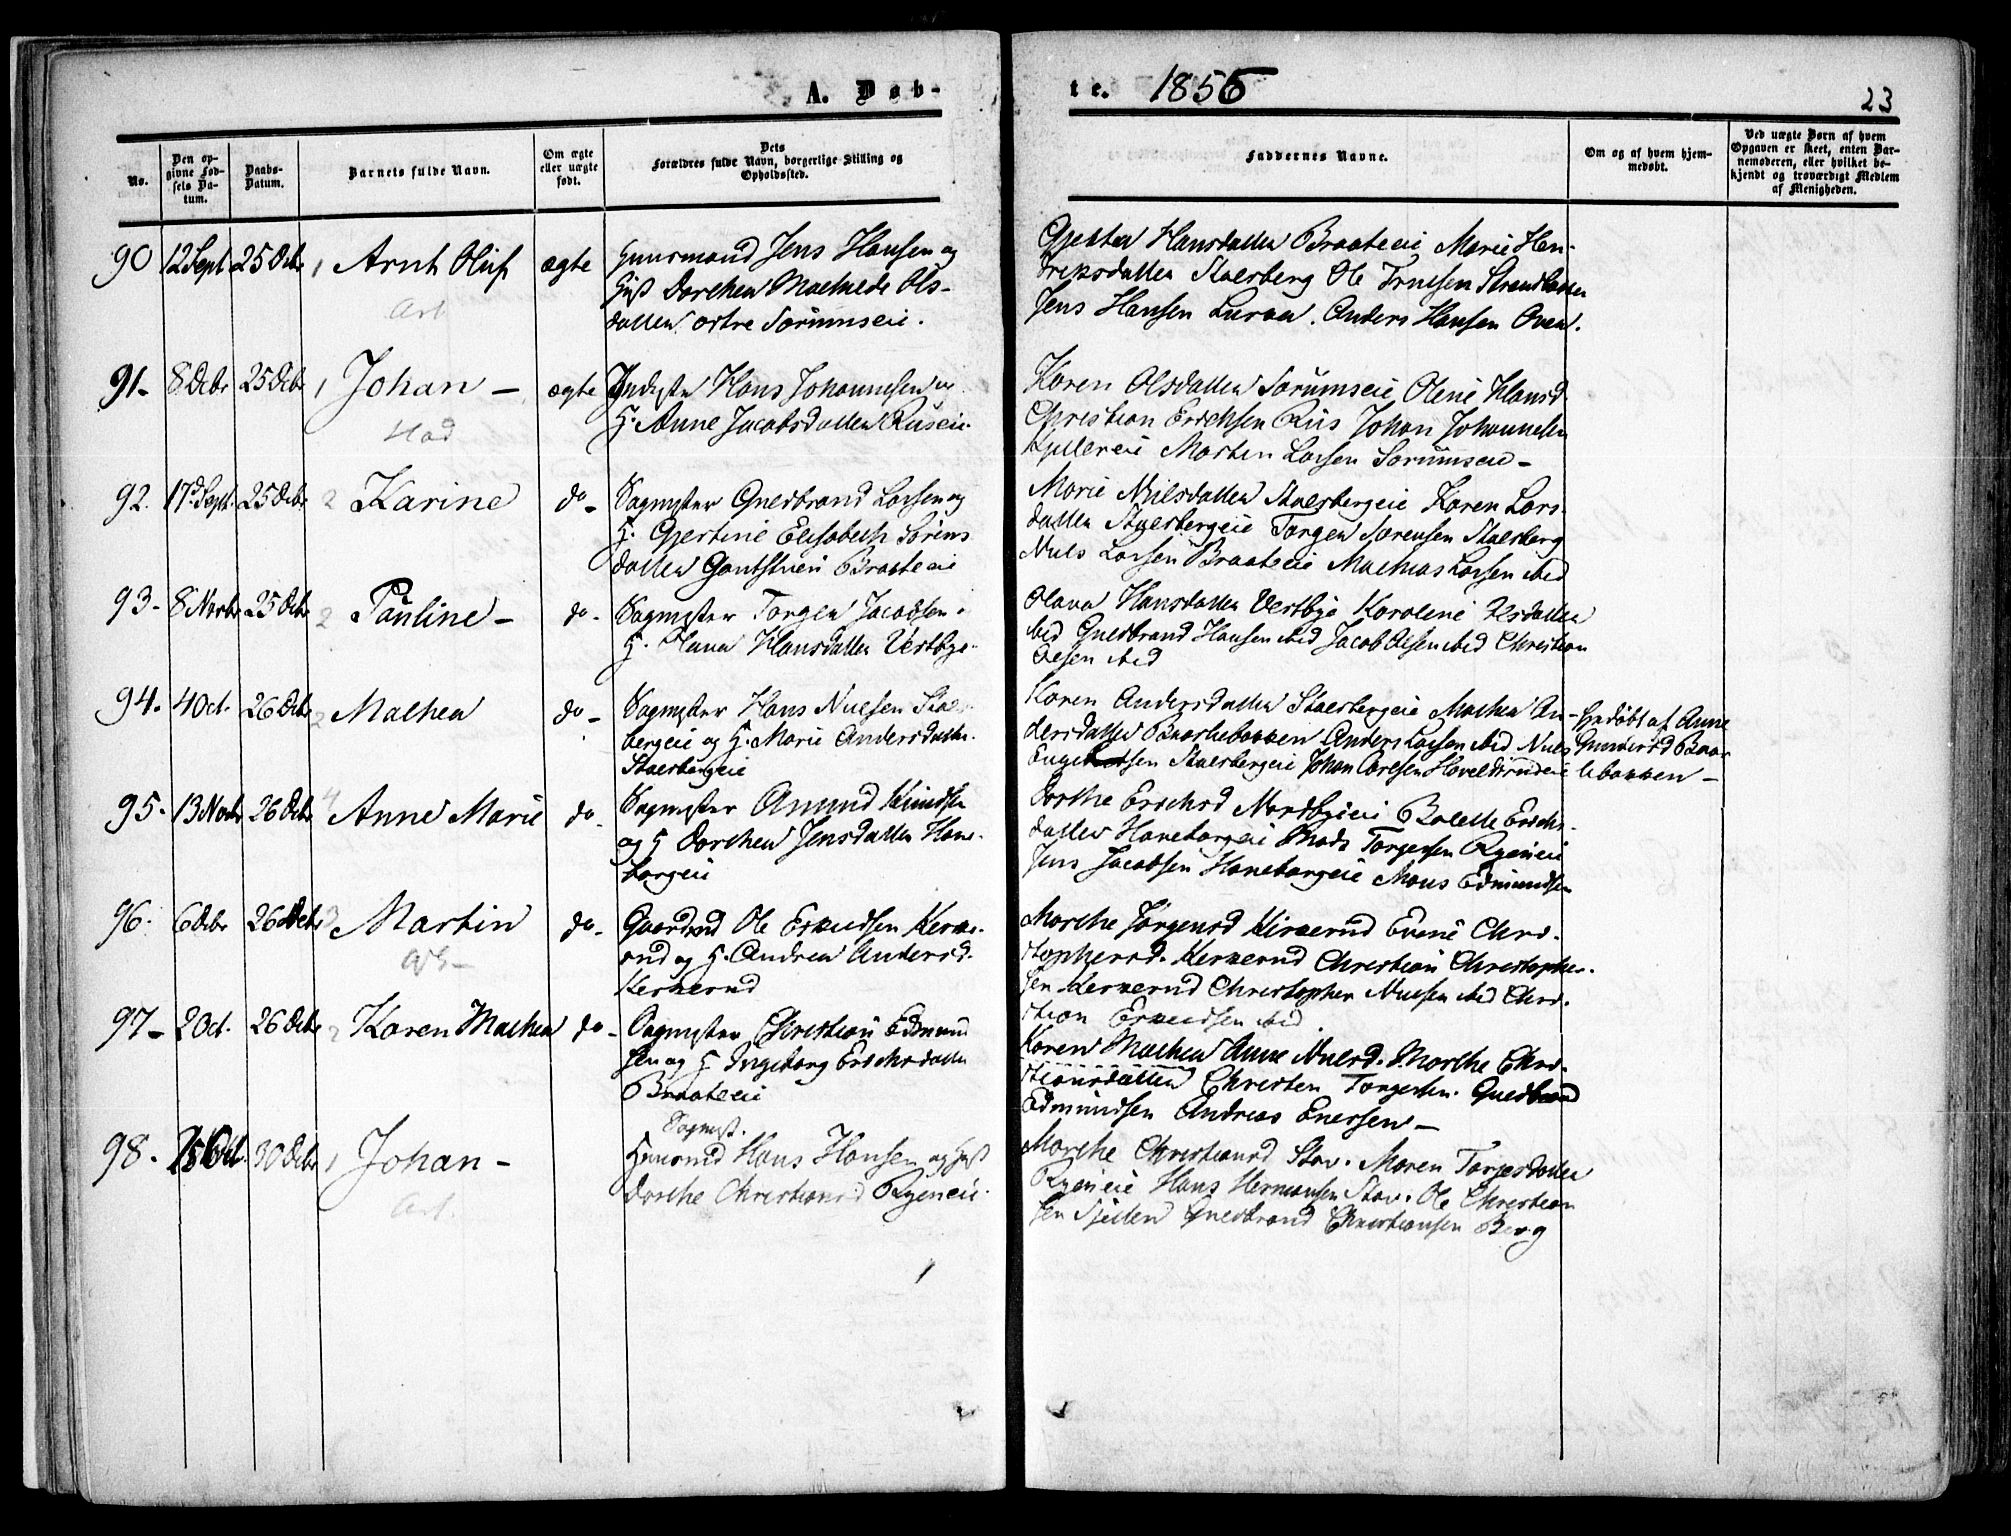 A. Døb-
te. 1856
23
No.
Den op-
givne Fød-
sels Da-
tum.
Daabs-
Datum.
Barnets fulde Navn.
Om ægte
eller uægte
født.
Dets
Forældres fulde Navn, borgerlige Stilling og
Opholdssted.
Faddernes Navne.
Om og af hvem hjem-
medøbt.
Ved uægte Børn af hvem
Opgaven er skeet, enten Bar-
nemoderen, eller hvilket be-
kjendt og troværdigt Medlem
af Menigheden.
90 12 Sept 25 Dcbr 1 Arnt Oluf ægte Huusmand Jens Hansen og
Hust Dorthea Mathilde Ols-
datter østre Sørumseie.
Art
Hansdatter Braateeie Marie Hen-
driksdatter Stalsberg Ole Truelsen
Jens Hansen Anders Hansen
91- 8 Dcbr 25 Dcbr 1 Johan - ægte Inderste Hans Johannesen og
H. Anne Jacobsdatter Ruseie
Had
Karen Olsdatter Sørumseie, Oline Hansd
Christian Erichsen Riis Johan Johannesen
Martin Larsen Sørumseie -
92. 17 Sept. 25 Dcbr 2 Karine do - Sagmester Gulbrand Larsen og
H. Gjertine Elisabeth Sørens
datter Braateeie
Marie Nilsdatter Stalsbergeie Karen Lars-
datter Stalsbergeie Torger Sørensen Stalsberg
Nils Larsen Braateeie Mathias Larsen ibid
93- 8 Novbr 25 Dcbr 2 Pauline - do - Sagmester Torger Jacobsen
H. Olava Hansdatter Vestbye
Olava Hansdatter Vestbye Karoline Olsdatter
ibid Gulbrand Hansen ibid Jacob Olsen ibid Christian
Olsen ibid
94. 4 Oct. 26 Dcbr 2 Mathea do - Sagmester Hans Nilsen Stals-
bergeie og H. Marie Andersdatter
Stalsbergeie
Karen Andersdatter Stalsbergeie Mathea An-
dersdatter Anders Larsen ibid Nils
Stalsbergeie Johan Carlsen
Hjdøbt af Anne
Gundersd
95- 13 Novbr 26 Dcbr 4 Anne Marie do - Sagmester Amund Knudsen
og H Dorthea Jensdatter Hane-
borgeie
Dorthe Erichsd Nordbyeie Bolette Erichs-
datter Haneborgeie Mads Torgersen Ryeneie
Jens Jacobsen Haneborgeie Edmundsen
96. 6 Dcbr 26 Dcbr 3 Martin do - Gaardmd Ole Kirke-
rud og H. Andrea Andersd.
Kirkerud
Marthe Jørgensd Kirkerud Eline Chri-
stophersd. Kirkerud Christian Christopher-
sen Kirkerud Christopher Nilsen ibid Chri-
stian ibid
97- 2 Oct. 26 Dcbr 2 Karen Mathea do - Sagmester Christian Edmund
sen og H Ingeborg Erichsdatter
Braateeie
Karen Mathea Anne Nilsd. Marthe Chri-
stiansdatter Christen Torgersen. Gulbrand
Edmundsen Andreas Enersen -
98. 15 Oct. 30 Dcbr 1 Johan - Sagmest.
Huusmd Hans Hansen og Hust
Dorthe Christiansd Ryeneie.
Art.
Marthe Christiansd Stav. Maren Torgersdatter
Ryeneie Hans Hermansen Stav. Ole Christian
sen Gulbrand Christiansen Berg